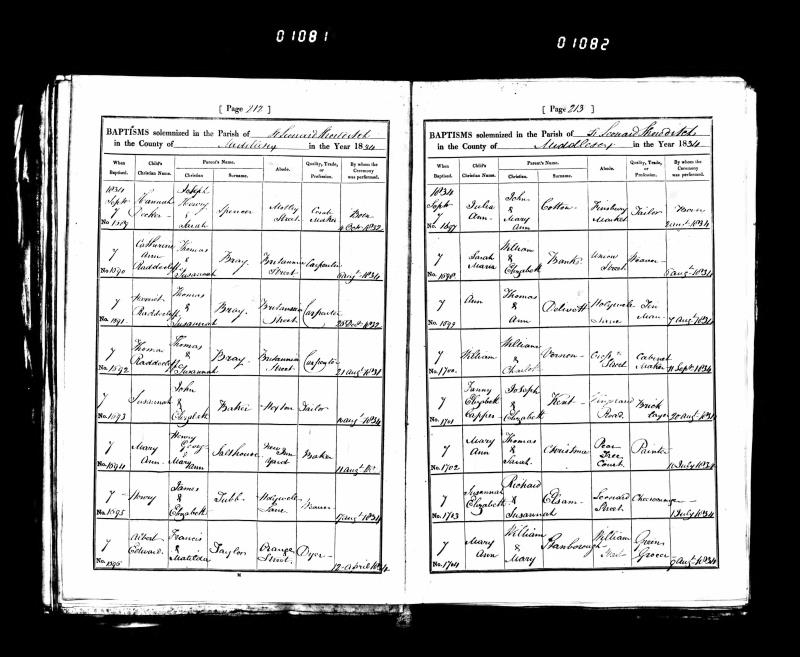 01081
01082
[ Page 212 ]
BAPTISMS solemnized in the Parish of St Leonard Shoreditch
in the County of Middlesex in the Year 1834
When Baptized. Child's Christian Name. Parent's Name. Christian Surname. Abode. Quality, Trade, or Profession. By whom the Ceremony was performed.
1834
Sept
7
No. 1589
Hannah
Joseph
Henry
&
Sarah
Spencer
Motley
Street
Maker
Born
4 Oct 1832
7
No. 1590
Catherine
Ann
Raddocliff
Thomas
&
Susannah
Bray
Britannia
Street
Carpenter
6 augt 1834
7
No. 1591
Harriet
Raddocliff
Thomas
&
Susannah
Bray
Britannia
Street
Carpenter
1832
7
No. 1592
Thomas
Raddocliffe
Thomas
&
Susannah
Bray
Britannia
Street
Carpenter
21 augt
7
No. 1593
Susannah
John
&
Elizabeth
Baker
Hoxton
Tailor
augt 1834
7
No. 1594
Mary
Ann
Henry
George
&
Mary Ann
Salthouse
New Inn
Yard
Baker
11 augt
7
No. 1595
Henry
James
&
Elizabeth
Tubb
Holywell
Lane
17 augt 1834
7
No. 1596
Albert
Edward
Francis
&
Matilda
Taylor
Orange
Street
Dyer
12 April 1834
[ Page 213 ]
BAPTISMS solemnized in the Parish of St Leonard Shoreditch
in the County of Middlesex in the Year 1834
When Baptized. Child's Christian Name. Parent's Name. Christian Surname. Abode. Quality, Trade, or Profession. By whom the Ceremony was performed.
1834
Sept
7
No. 1697
Julia
Ann
John
&
Mary
Ann
Cotton
Finsbury
Market
Tailor
Born
2 augt 1834
7
No. 1698
Sarah
Maria
William
&
Elizabeth
Banks
Union
Street
Weaver
6 augt 1834
7
No. 1699
Ann
Thomas
&
Ann
Holywell
Lane
Tin
Man
7 augt 1834
7
No. 1700
William
William
&
Charlot
Vernon
Street
Cabinet
Maker
11 Sept 1834
7
No. 1701
Fanny
Elizabeth
Capper
Joseph
&
Elizabeth
Kent
Kingsland
Road
Brick
Layer
20 augt 1834
7
No. 1702
Mary
Ann
Thomas
&
Sarah
Christmas
Pear
Tree
Court
Painter
July 1834
7
No. 1703
Susannah
Elizabeth
Richard
&
Susannah
Elsam
Leonard
Street
Cheesemonger
1 July 1834
7
No. 1704
Mary
Ann
William
&
Mary
William
Green
Grocer
9 augt 1834